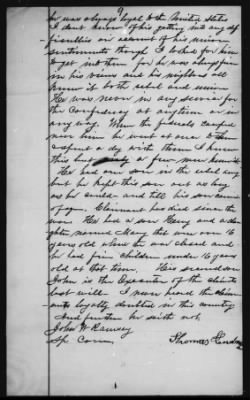 9
he was always loyal to the United States
I dont know of his getting into any dif
ficulties on account of his union
sentiments though I looked for him
to get into them for he was always firm
in his views and his neighbors all
knew it both the rebel and union
He was never in any service for
the Confederacy at any time or in
any way. When the federals camped
near him he went at once to them
and spent a day with them I knew
this but only a few men knew it
He had one son in the rebel army
but he kept this son out as long
as he could and till his son came
of age. Claimant has died since the
war. He had a son Henry and a daugh
ter named Mary that were over 16
years old when the war closed and
he had five children under 16 years
old at that time. His second son
John is the Executor of the claim
ants last will. I never heard the claim
ants loyalty doubted in this country
And further he saith not.
John W Ramsey
Sp. Comm.
Thomas